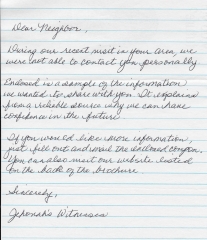 Dear Neighbor,
During our recent visit in your area, we
were not able to contact you personally.
Enclosed is a sample of the information
we wanted to share with you. It explains
from a reliable source why we can have
confidence in the future.
If you would like more information,
just fill out and mail the enclosed coupon.
You can also visit our website listed
on the back of the brochure.
Sincerely,
Jehovah's Witnesses